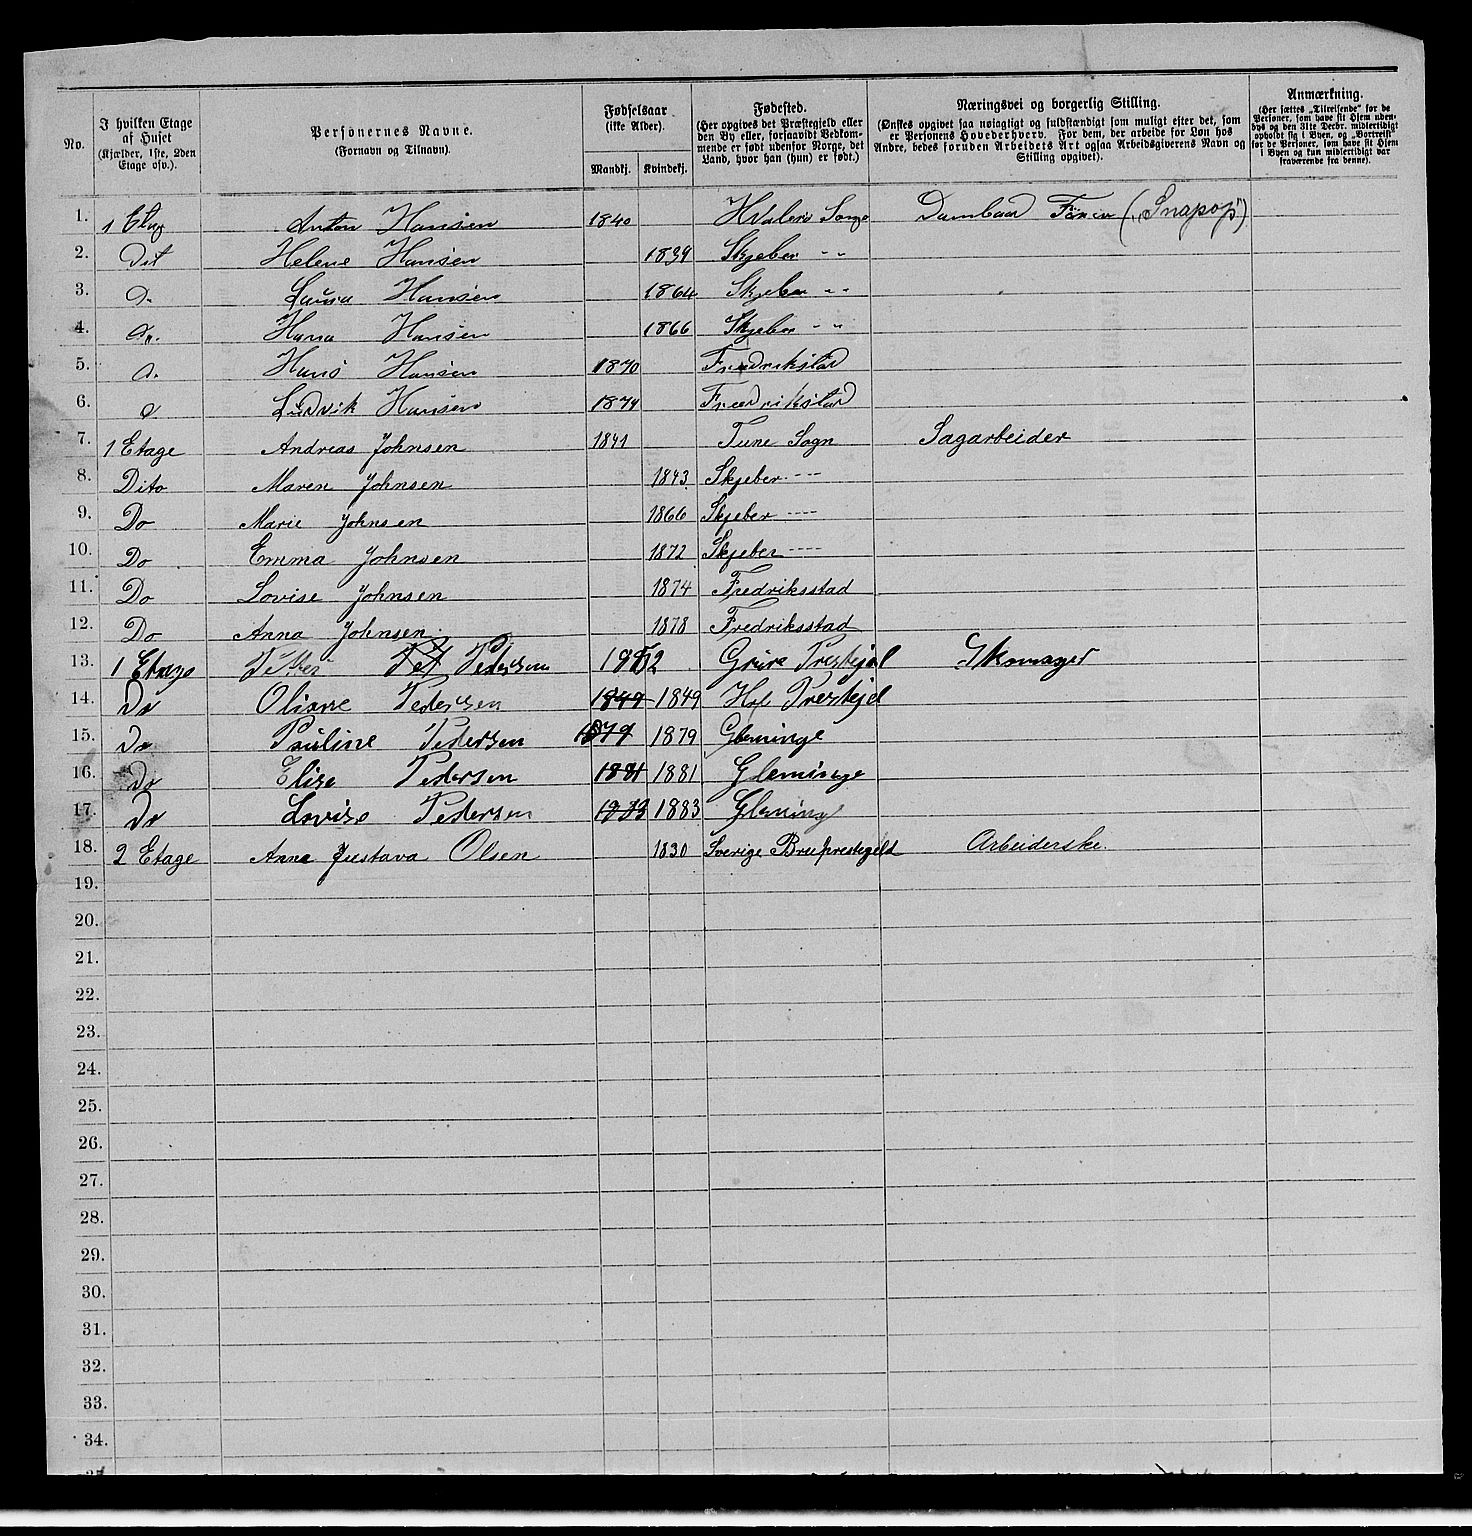 No.
I hvilken Etage af Huset (Kjælder, 1ste, 2den Etage osv.).
Personernes Navne. (Fornavn og Tilnavn).
Fødselsaar (ikke Alder).
Mandkj. Kvindekj.
Fødested. (Her opgives det Præstegjeld eller den By eller, forsaavidt Vedkommende er født udenfor Norge, det Land, hvor han (hun) er født.)
Næringsvei og borgerlig Stilling. (Ønskes opgivet saa nøiagtigt og fuldstændigt som muligt efter det, som er Personens Hovederhverv. For dem, der arbeide for Løn hos Andre, bedes foruden Arbeidets Art ogsaa Arbeidsgiverens Navn og Stilling opgivet).
Anmærkning. (Her sættes „Tilreisende" for de Personer, som have sit Hjem udenbys og den 31te Decbr. midlertidigt opholdt sig i Byen, og „Bortreist" for de Personer, som have sit Hjem i Byen og kun midlertidigt var fraværende fra denne).
1. 1 Etag Anton Hansen 1840 Hvalers Sogn Dambaad Fører („Snapop")
2. Dit Helene Hansen 1839 Skjeber " "
3. D. Laura Hansen 1864 Skjeber " "
4. D. Hana Hansen 1866 Skjeber " "
5. D. Hans Hansen 1870 Fredrikstad
6. D Ludvik Hansen 1874 Fredrikstad
7. 1 Etage Andreas Johnsen 1841 Tune Sogn Sagarbeider
8. Dito Maren Johnsen 1843 Skjeber ----
9. Do Marie Johnsen 1866 Skjeber ----
10. Do Emma Johnsen 1872 Skjeber ----
11. Do Lovise Johnsen 1874 Fredriksstad
12. Do Anna Johnsen. 1878 Fredriksstad
13. 1 Etage Petter Pedersen 1852 Grure Prestejel Skomager
14. Do Oliane Pedersen 1849 1849 Hol Prestejel
15. Do Pauline Pedersen 1879 1879 Gleminge
16. Do Elise Pedersen 1881 1881 Gleminge
17. Do Lovise Pedersen 1883 1883 Gleming
18. 2 Etage Anna Gustava Olsen 1830 Sverige Bruprestegeld Arbeiderske.
19.
20.
21.
22.
23.
24.
25.
26.
27.
28.
29.
30.
31.
32.
33.
34.